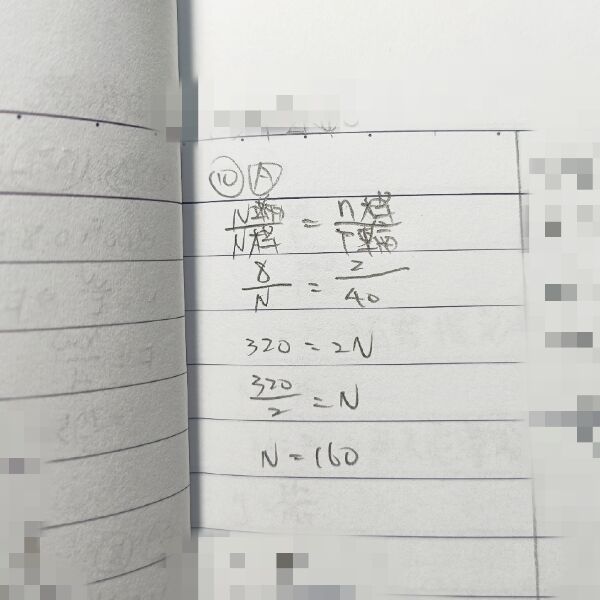 ⑩ A
N / N = n / r
8 / N = 2 / 40
320 = 2N
320 / 2 = N
N = 160